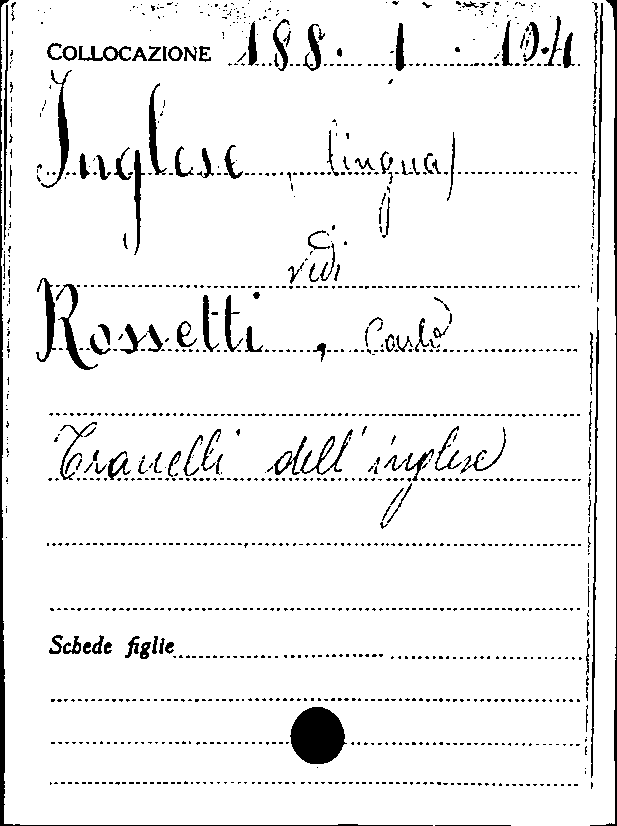 COLLOCAZIONE 188. 1. 10.4
Inglese (lingua)
vedi
Rossetti, Carlo
Tranelli dell'inglese
Schede figlie